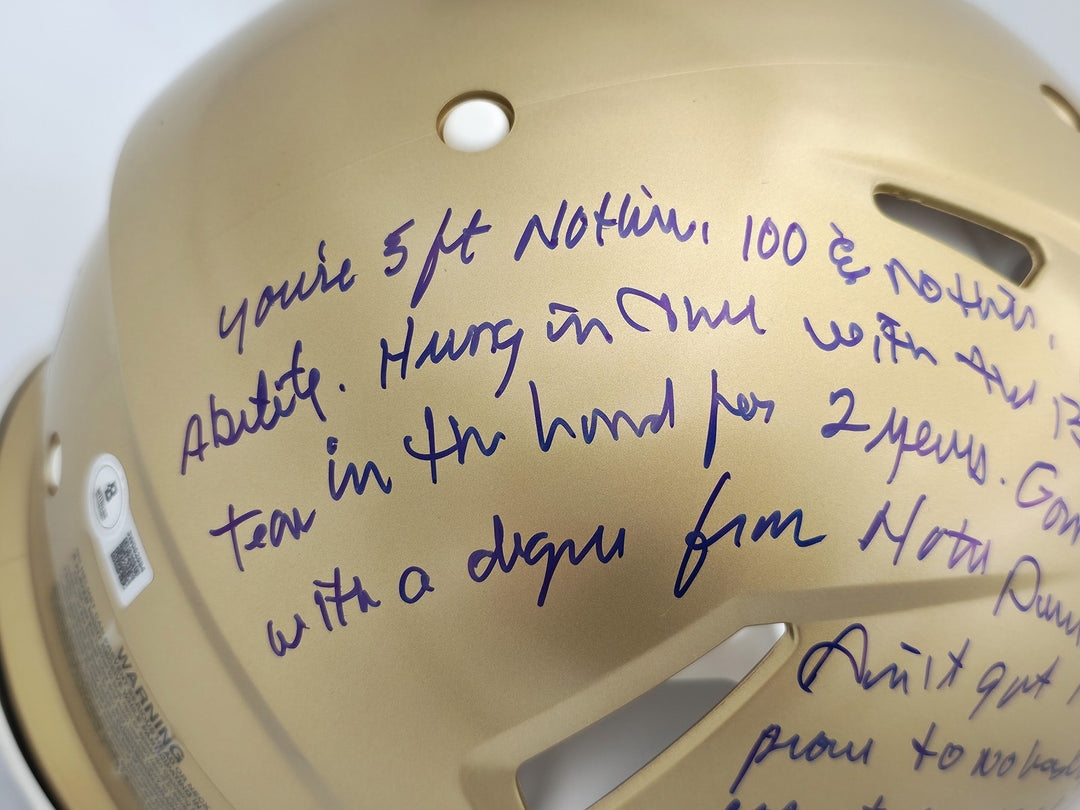 you're 5 ft Nothin. 100 & Nothin.
Ability. Hung in there with the B
team in the land for 2 years. Gon
with a degree from Notre Dame
Ain't got
prove to nobody
WARNING